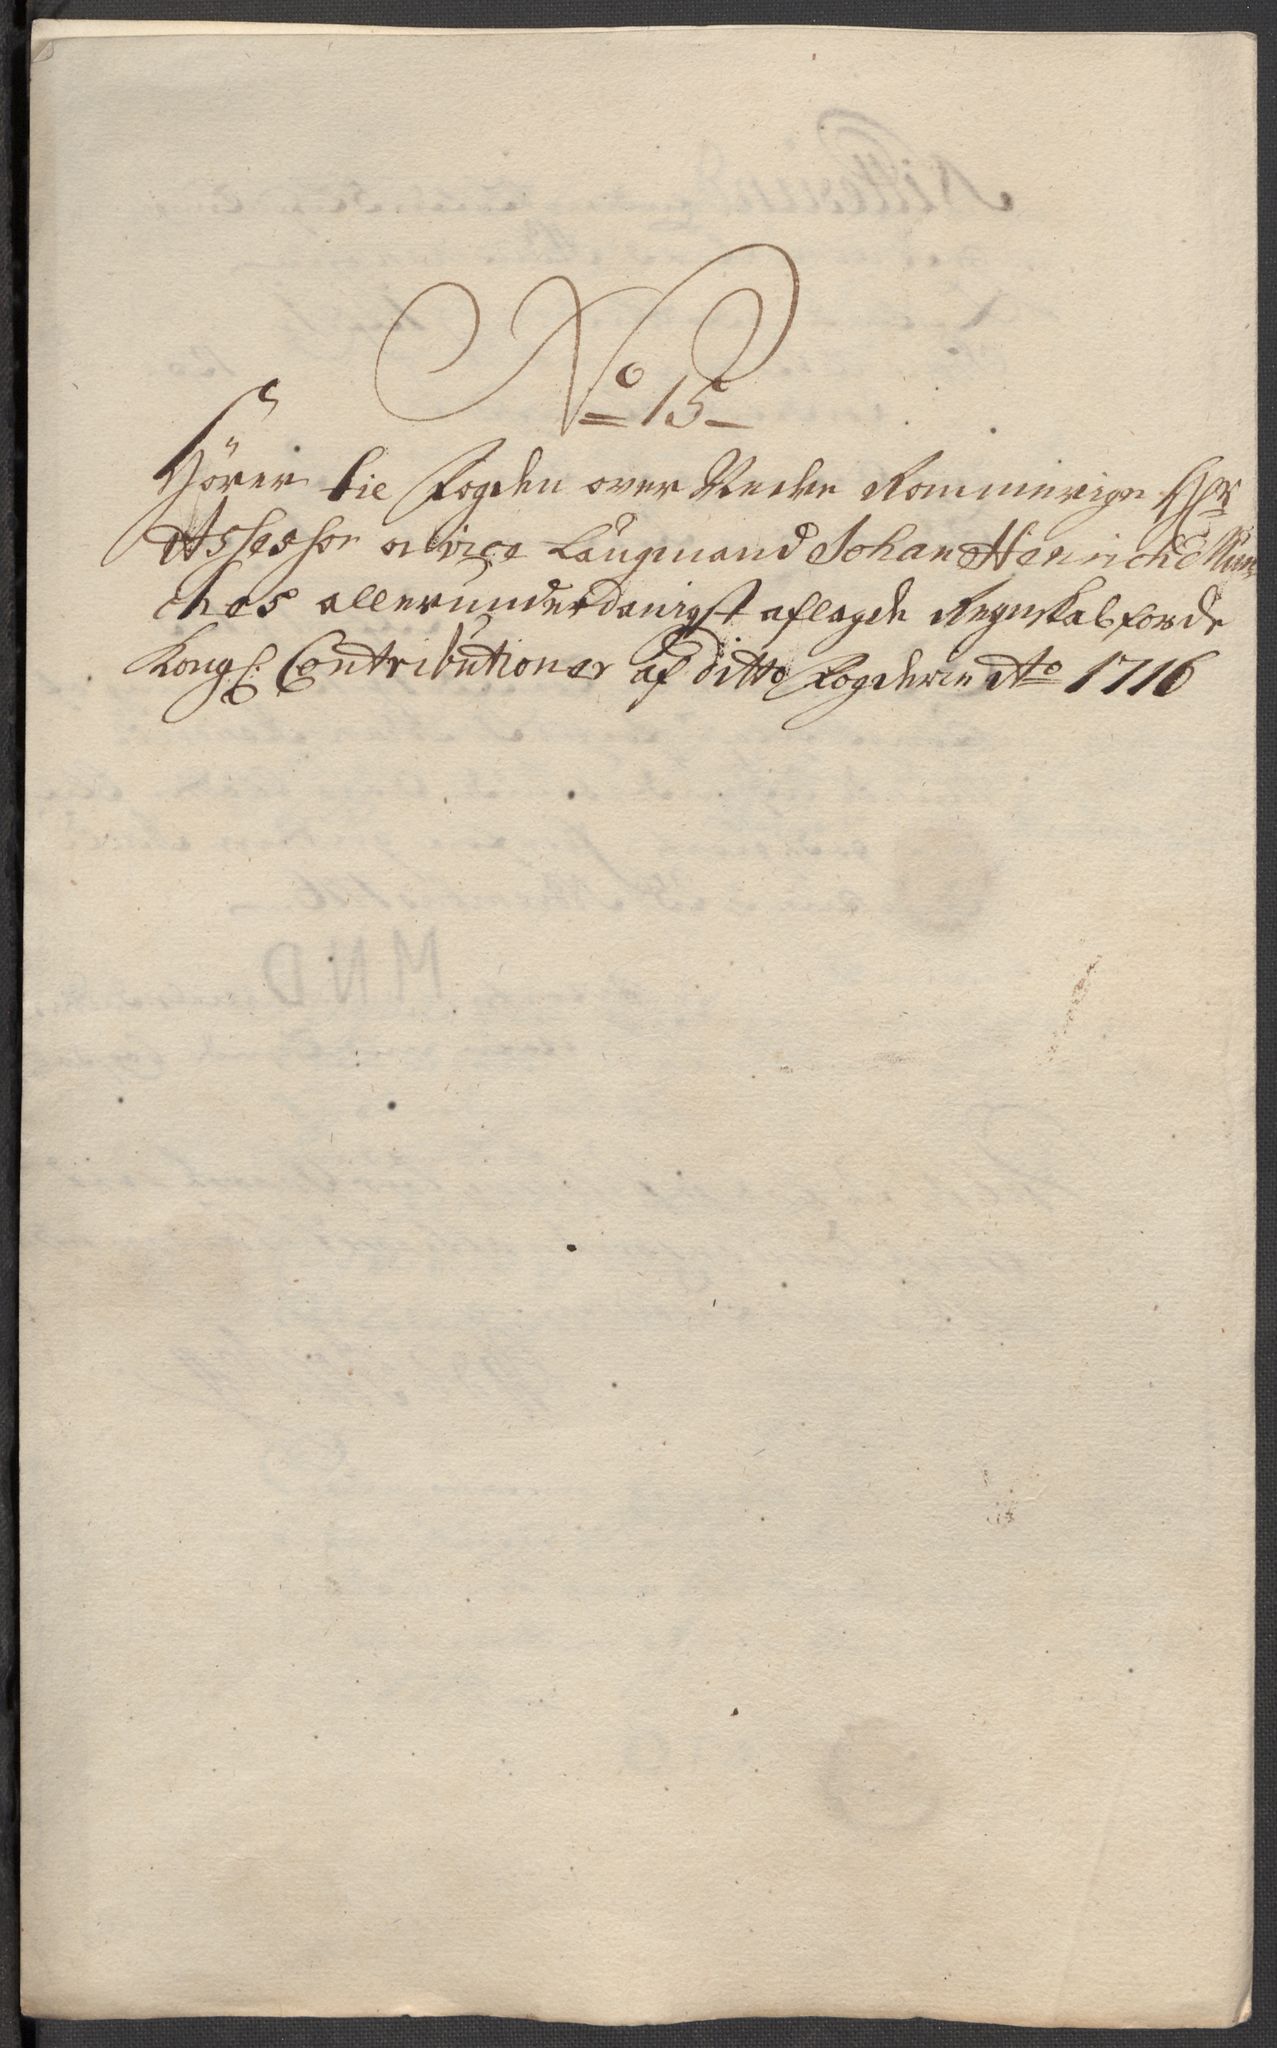 No 15
Hörer til Fogden over Nedre Rommerige Hr
Assessor o vice Laugmand Johan Henrich Mun
ches allerunderdanigst aflagde Regnskab for de
Kongl: Contributioner af ditto Fogderie Ao 1716